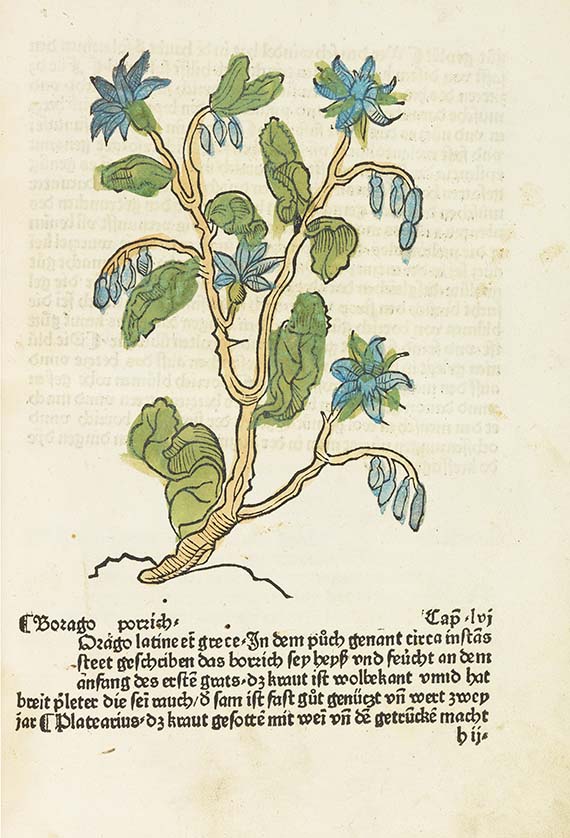 ¶Borago porrich· Cap̄·lvj
Orago latine et̄ grece·In dem půch genant circa instās
steet geschriben das borrich sey heyß vnd feücht an dem
anfang des erstē grats·dz kraut ist wolbekant vnnd hat
breit pleter die sei rauch/d̓ sam ist fast gůt genützt vn̄ wert zwey
jar ¶Platearius·dz kraut gesottē mit wei vn̄ dē getrūckē macht
h ij·